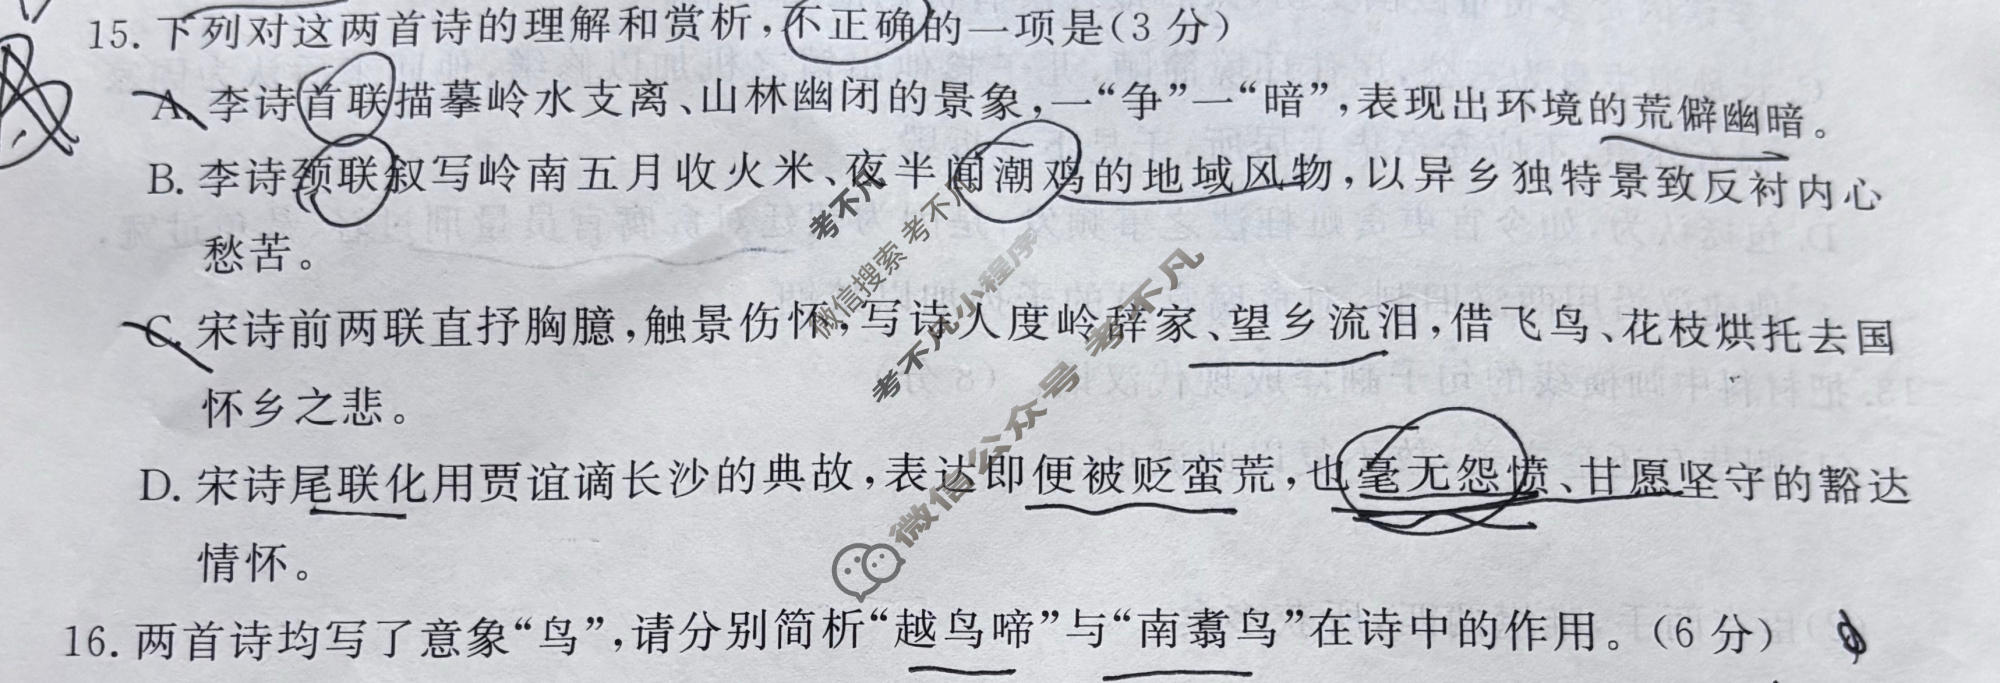 15. 下列对这两首诗的理解和赏析,不正确的一项是(3 分)
A. 李诗首联描摹岭水支离、山林幽闭的景象,一“争”一“暗”,表现出环境的荒僻幽暗。
B. 李诗颈联叙写岭南五月收火米、夜半闻潮鸡的地域风物,以异乡独特景致反衬内心
愁苦。
C. 宋诗前两联直抒胸臆,触景伤怀,写诗人度岭辞家、望乡流泪,借飞鸟、花枝烘托去国
怀乡之悲。
D. 宋诗尾联化用贾谊谪长沙的典故,表达即便被贬蛮荒,也毫无怨愤、甘愿坚守的豁达
情怀。
16. 两首诗均写了意象“鸟”,请分别简析“越鸟啼”与“南翥鸟”在诗中的作用。(6 分)
考不凡
微信搜索 考不凡
考不凡小程序
微信公众号 考不凡